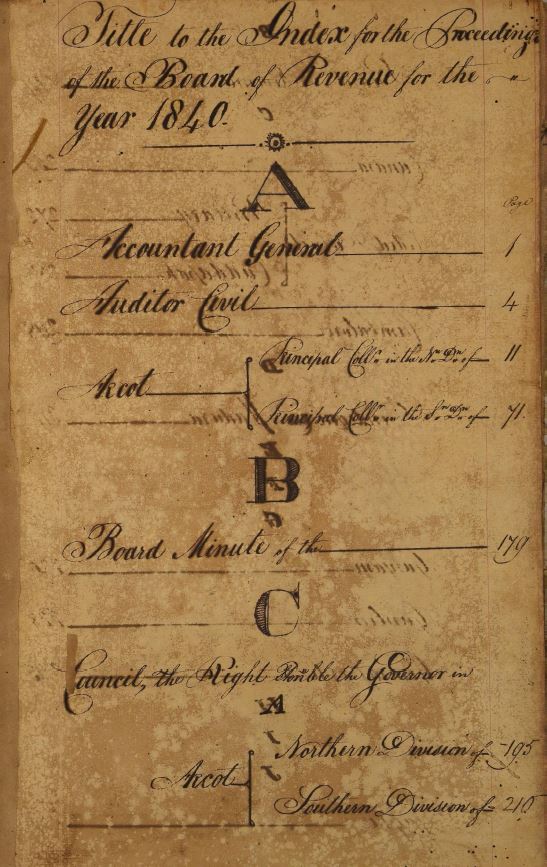 Title to the Index for the Proceedings
of the Board of Revenue for the
Year 1840.
A
Page
Accountant General 1
Auditor Civil 4
Principal Collr. in the Nn. Dn. of 11
Arcot
Principal Collr. in the Sn. Dn. of 71
B
Board Minute of the 179
C
Council, the Right Honble the Governor in
A
Northern Division of 195
Arcot
Southern Division of 210